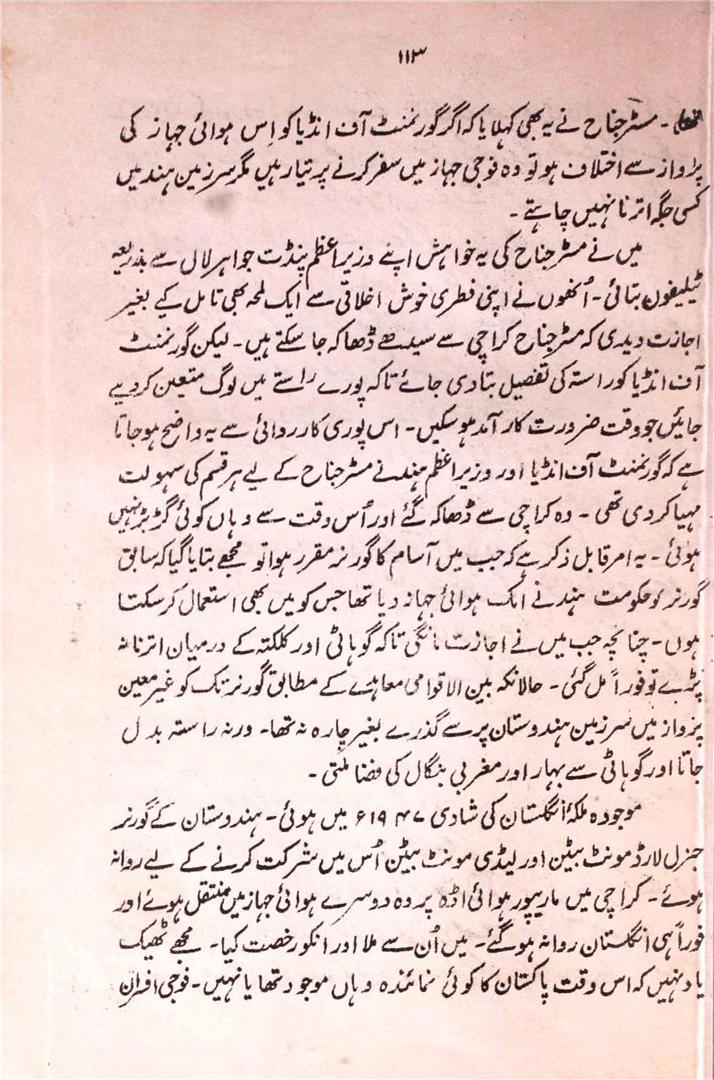 ۱۱۳
تھا۔ مسٹر جناح نے یہ بھی کہلایا کہ اگر گورنمنٹ آف انڈیا کو اِس ہوائی جہاز کی
پرواز سے اختلاف ہو تو وہ فوجی جہاز میں سفر کرنے پر تیار ہیں مگر سرزمین ہند میں
کسی جگہ اترنا نہیں چاہتے۔
میں نے مسٹر جناح کی یہ خواہش اپنے وزیر اعظم پنڈت جواہر لال سے بذریعہ
ٹیلیفون بتائی۔ اُنھوں نے اپنی فطری خوش اخلاقی سے ایک لمحہ بھی تامل کے بغیر
اجازت دیدی کہ مسٹر جناح کراچی سے سیدھے ڈھاکہ جا سکتے ہیں۔ لیکن گورنمنٹ
آف انڈیا کو راستہ کی تفصیل بتا دی جائے تاکہ پورے راستے میں لوگ متعین کر دیے
جائیں جو وقت ضرورت کار آمد ہو سکیں۔ اس پوری کارروائی سے یہ واضح ہو جاتا
ہے کہ گورنمنٹ آف انڈیا اور وزیر اعظم ہند نے مسٹر جناح کے لیے ہر قسم کی سہولت
مہیا کر دی تھی۔ وہ کراچی سے ڈھاکہ گئے اور اُس وقت سے وہاں کوئی گڑبڑ نہیں
ہوئی۔ یہ امر قابل ذکر ہے کہ جب میں آسام کا گورنر مقرر ہوا تو مجھے بتایا گیا کہ سابق
گورنر کو حکومت ہند نے ایک ہوائی جہاز دیا تھا جس کو میں بھی استعمال کر سکتا
ہوں۔ چنانچہ جب میں نے اجازت مانگی تاکہ گوہاٹی اور کلکتہ کے درمیان اترنا نہ
پڑے تو فوراً مل گئی۔ حالانکہ بین الاقوامی معاہدے کے مطابق گورنر تک کو غیر معین
پرواز میں سرزمین ہندوستان پر سے گذرے بغیر چارہ نہ تھا۔ ورنہ راستہ بدل
جاتا اور گوہاٹی سے بہار اور مغربی بنگال کی فضا ملتی۔
موجودہ ملکۂ انگلستان کی شادی ۱۹۴۷ء میں ہوئی۔ ہندوستان کے گورنر
جنرل لارڈ مونٹ بیٹن اور لیڈی مونٹ بیٹن اُس میں شرکت کرنے کے لیے روانہ
ہوئے۔ کراچی میں ماریپور ہوائی اڈہ پر وہ دوسرے ہوائی جہاز میں منتقل ہوئے اور
فوراً ہی انگلستان روانہ ہو گئے۔ میں اُن سے ملا اور انکو رخصت کیا۔ مجھے ٹھیک
یاد نہیں کہ اس وقت پاکستان کا کوئی نمائندہ وہاں موجود تھا یا نہیں۔ فوجی افسران